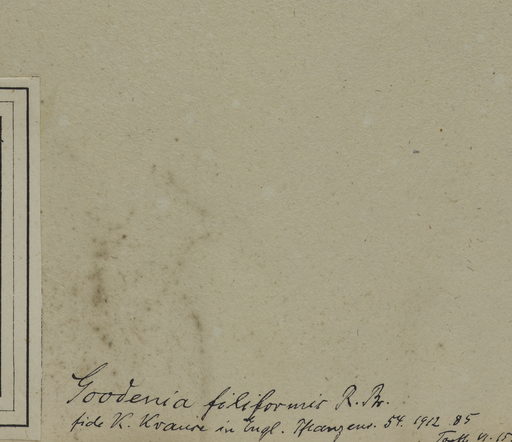 Goodenia filiformis R. Br.
fide K. Krause in Engl. Pflanzenr. 54. 1912. 85